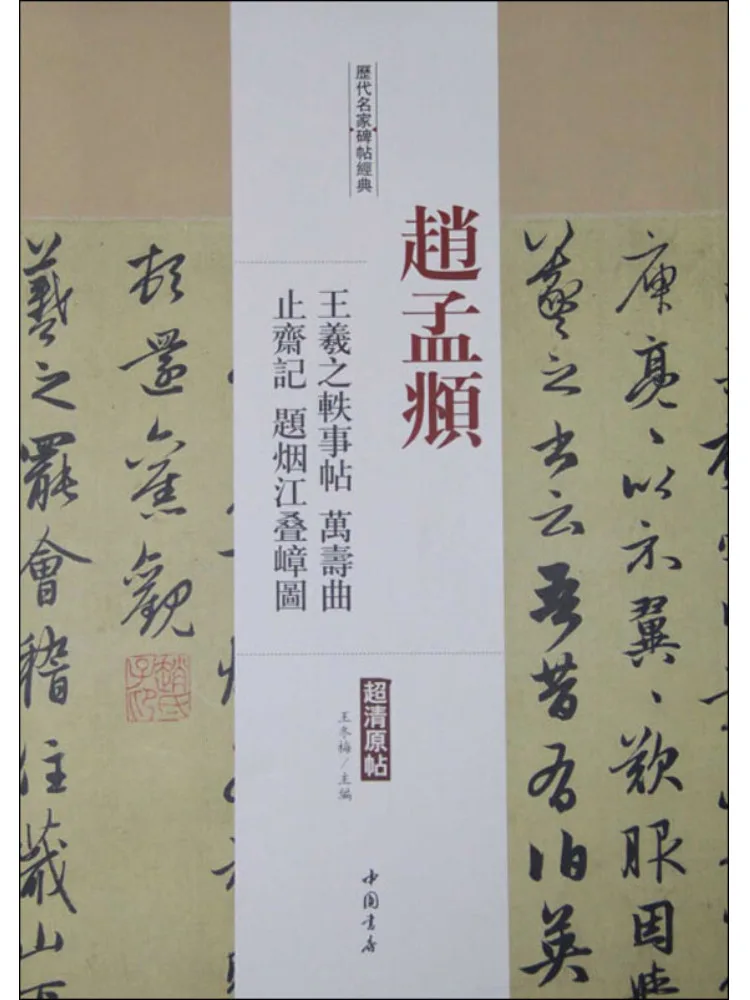 歷代名家碑帖經典
趙孟頫
王羲之軼事帖 萬壽曲
止齋記 題烟江叠嶂圖
超清原帖
王冬梅/主編
中国書店
庾亮〻以示翼〻歎服因
羲之書云吾昔有伯英
頓還舊觀
趙氏子昂
羲之罷會稽住蕺山下